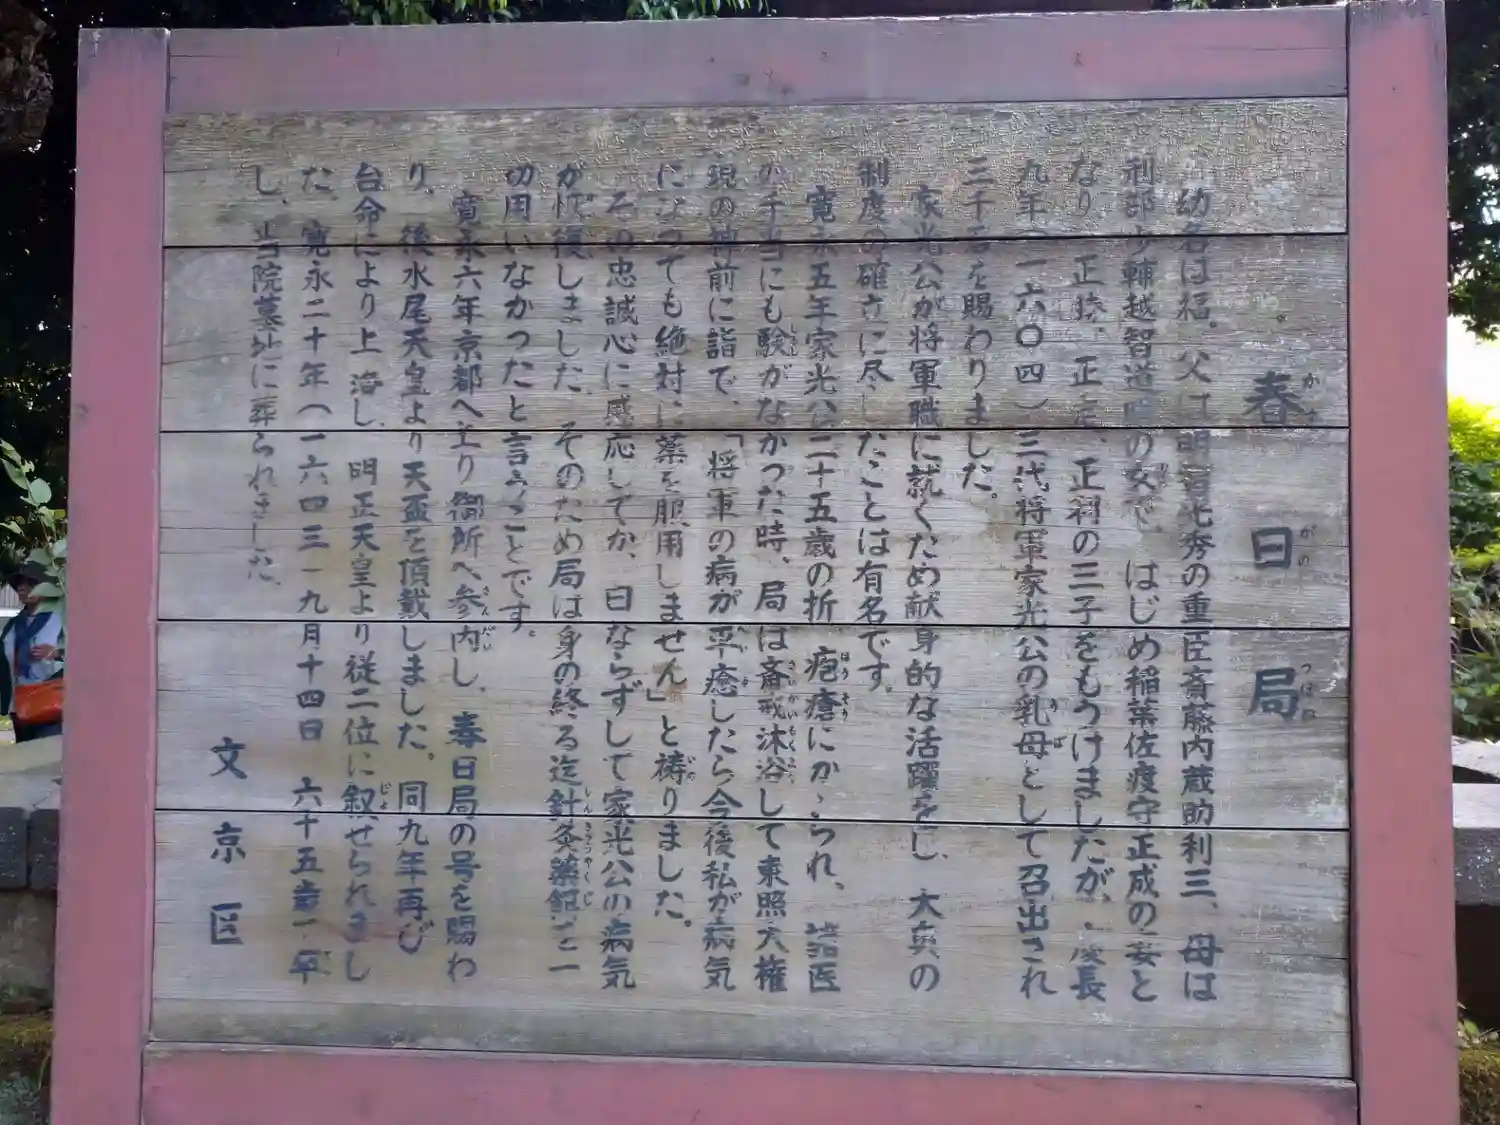 春日局
かすがのつぼね
幼名は福。父は明智光秀の重臣斎藤内蔵助利三、母は
利部少輔越智道明の女で、はじめ稲葉佐渡守正成の妻と
なり、正勝、正定、正利の三子をもうけましたが、慶長
九年（一六〇四）三代将軍家光公の乳母として召出され
三千石を賜わりました。
家光公が将軍職に就くため献身的な活躍をし、大奥の
制度の確立に尽したことは有名です。
寛永五年家光公二十五歳の折、疱瘡にかゝられ、諸医
の手当にも験がなかった時、局は斎戒沐浴して東照大権
現の神前に詣で、「将軍の病が平癒したら今後私が病気
になっても絶対に薬を服用しません」と祷りました。
その忠誠心に感応してか、日ならずして家光公の病気
が恢復しました。そのため局は身の終る迄針灸薬餌を一
切用いなかったと言うことです。
寛永六年京都へ上り御所へ参内し、春日局の号を賜わ
り、後水尾天皇より天盃を頂戴しました。同九年再び
台命により上洛し、明正天皇より従二位に叙せられまし
た。寛永二十年（一六四三）九月十四日 六十五歳で卒
し、当院墓地に葬られました。
文京区